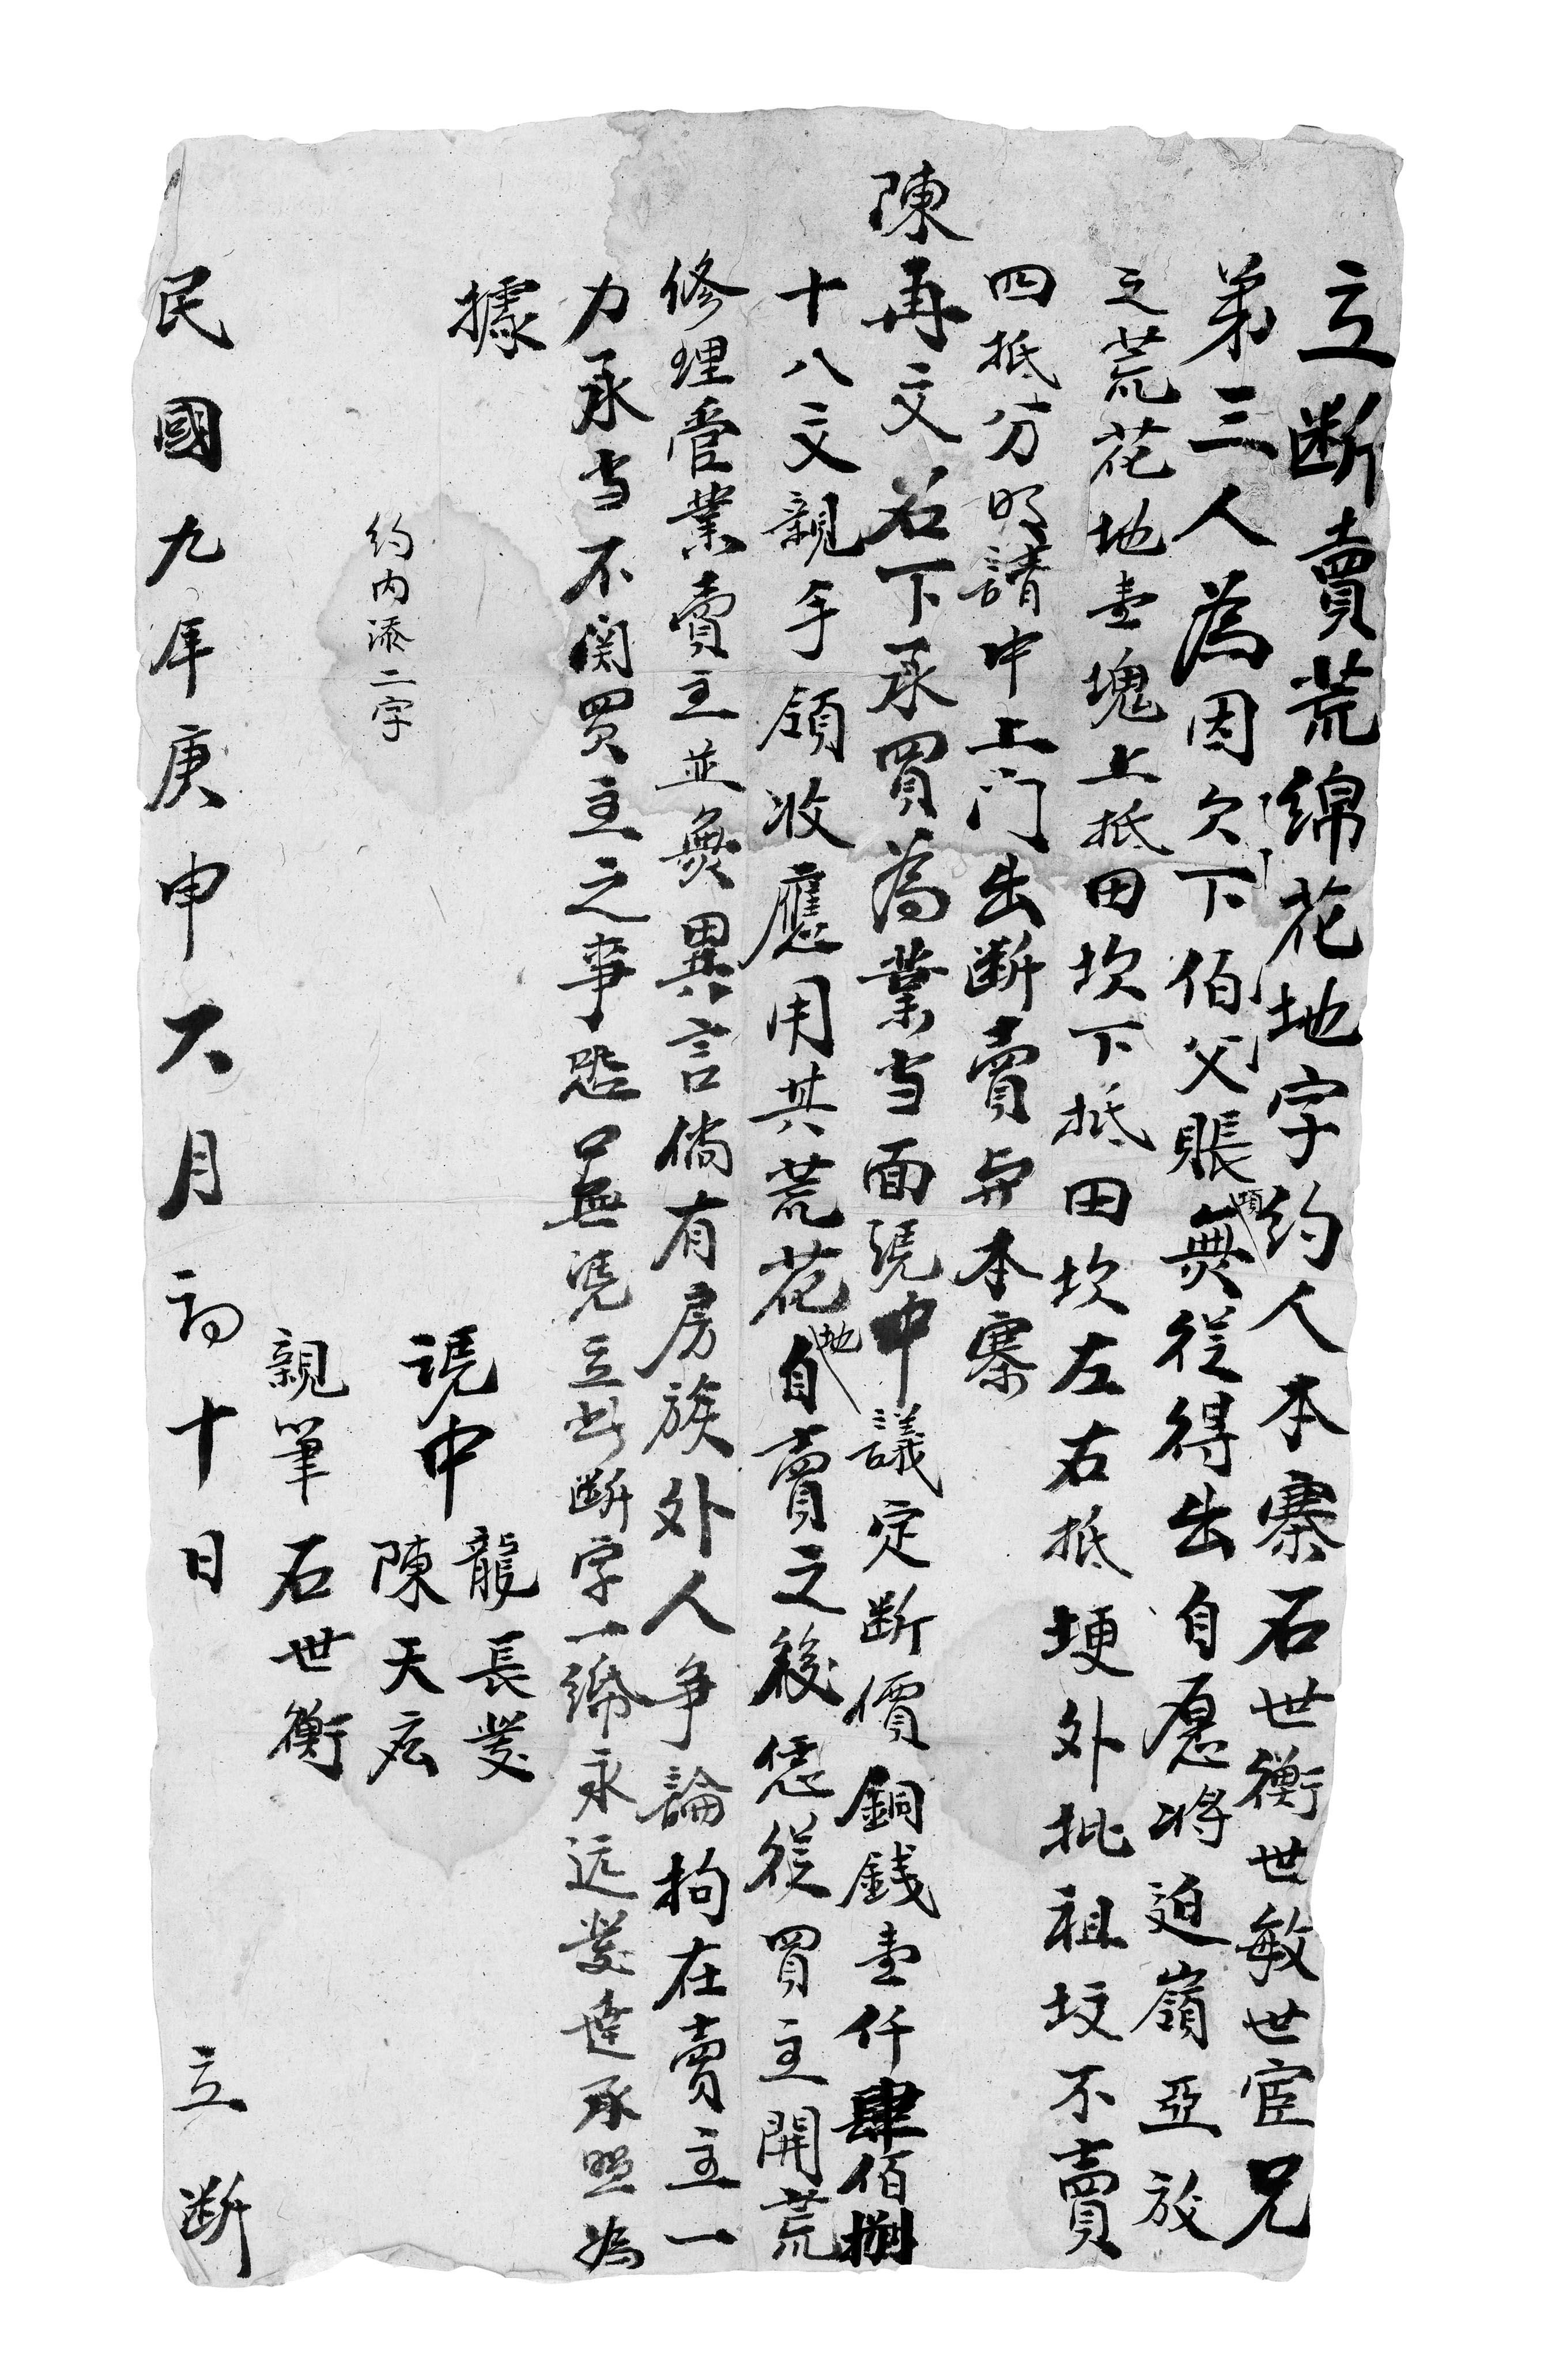 立断賣荒綿花地字約人本寨石世衡世敏世宦兄
弟三人為因欠下伯父賬項無從得出自愿将迫嶺亞放
之荒花地壹塊上抵田坎下抵田坎左右抵埂外批祖坟不賣
四抵分明請中上门出断賣與本寨
陳再文名下承買為業当面凴中議定断價銅錢壹仟肆佰捌
十八文親手領收應用其荒花地自賣之後恁從買主開荒
修理管業賣主並無異言倘有房族外人争論拘在賣主一
力承当不関買主之事恐口無凴立此断字一紙永远發達承照為
據
約内添二字
凴中
龍長發
陳天宏
親筆石世衡
民國九年庚申六月初十日立断